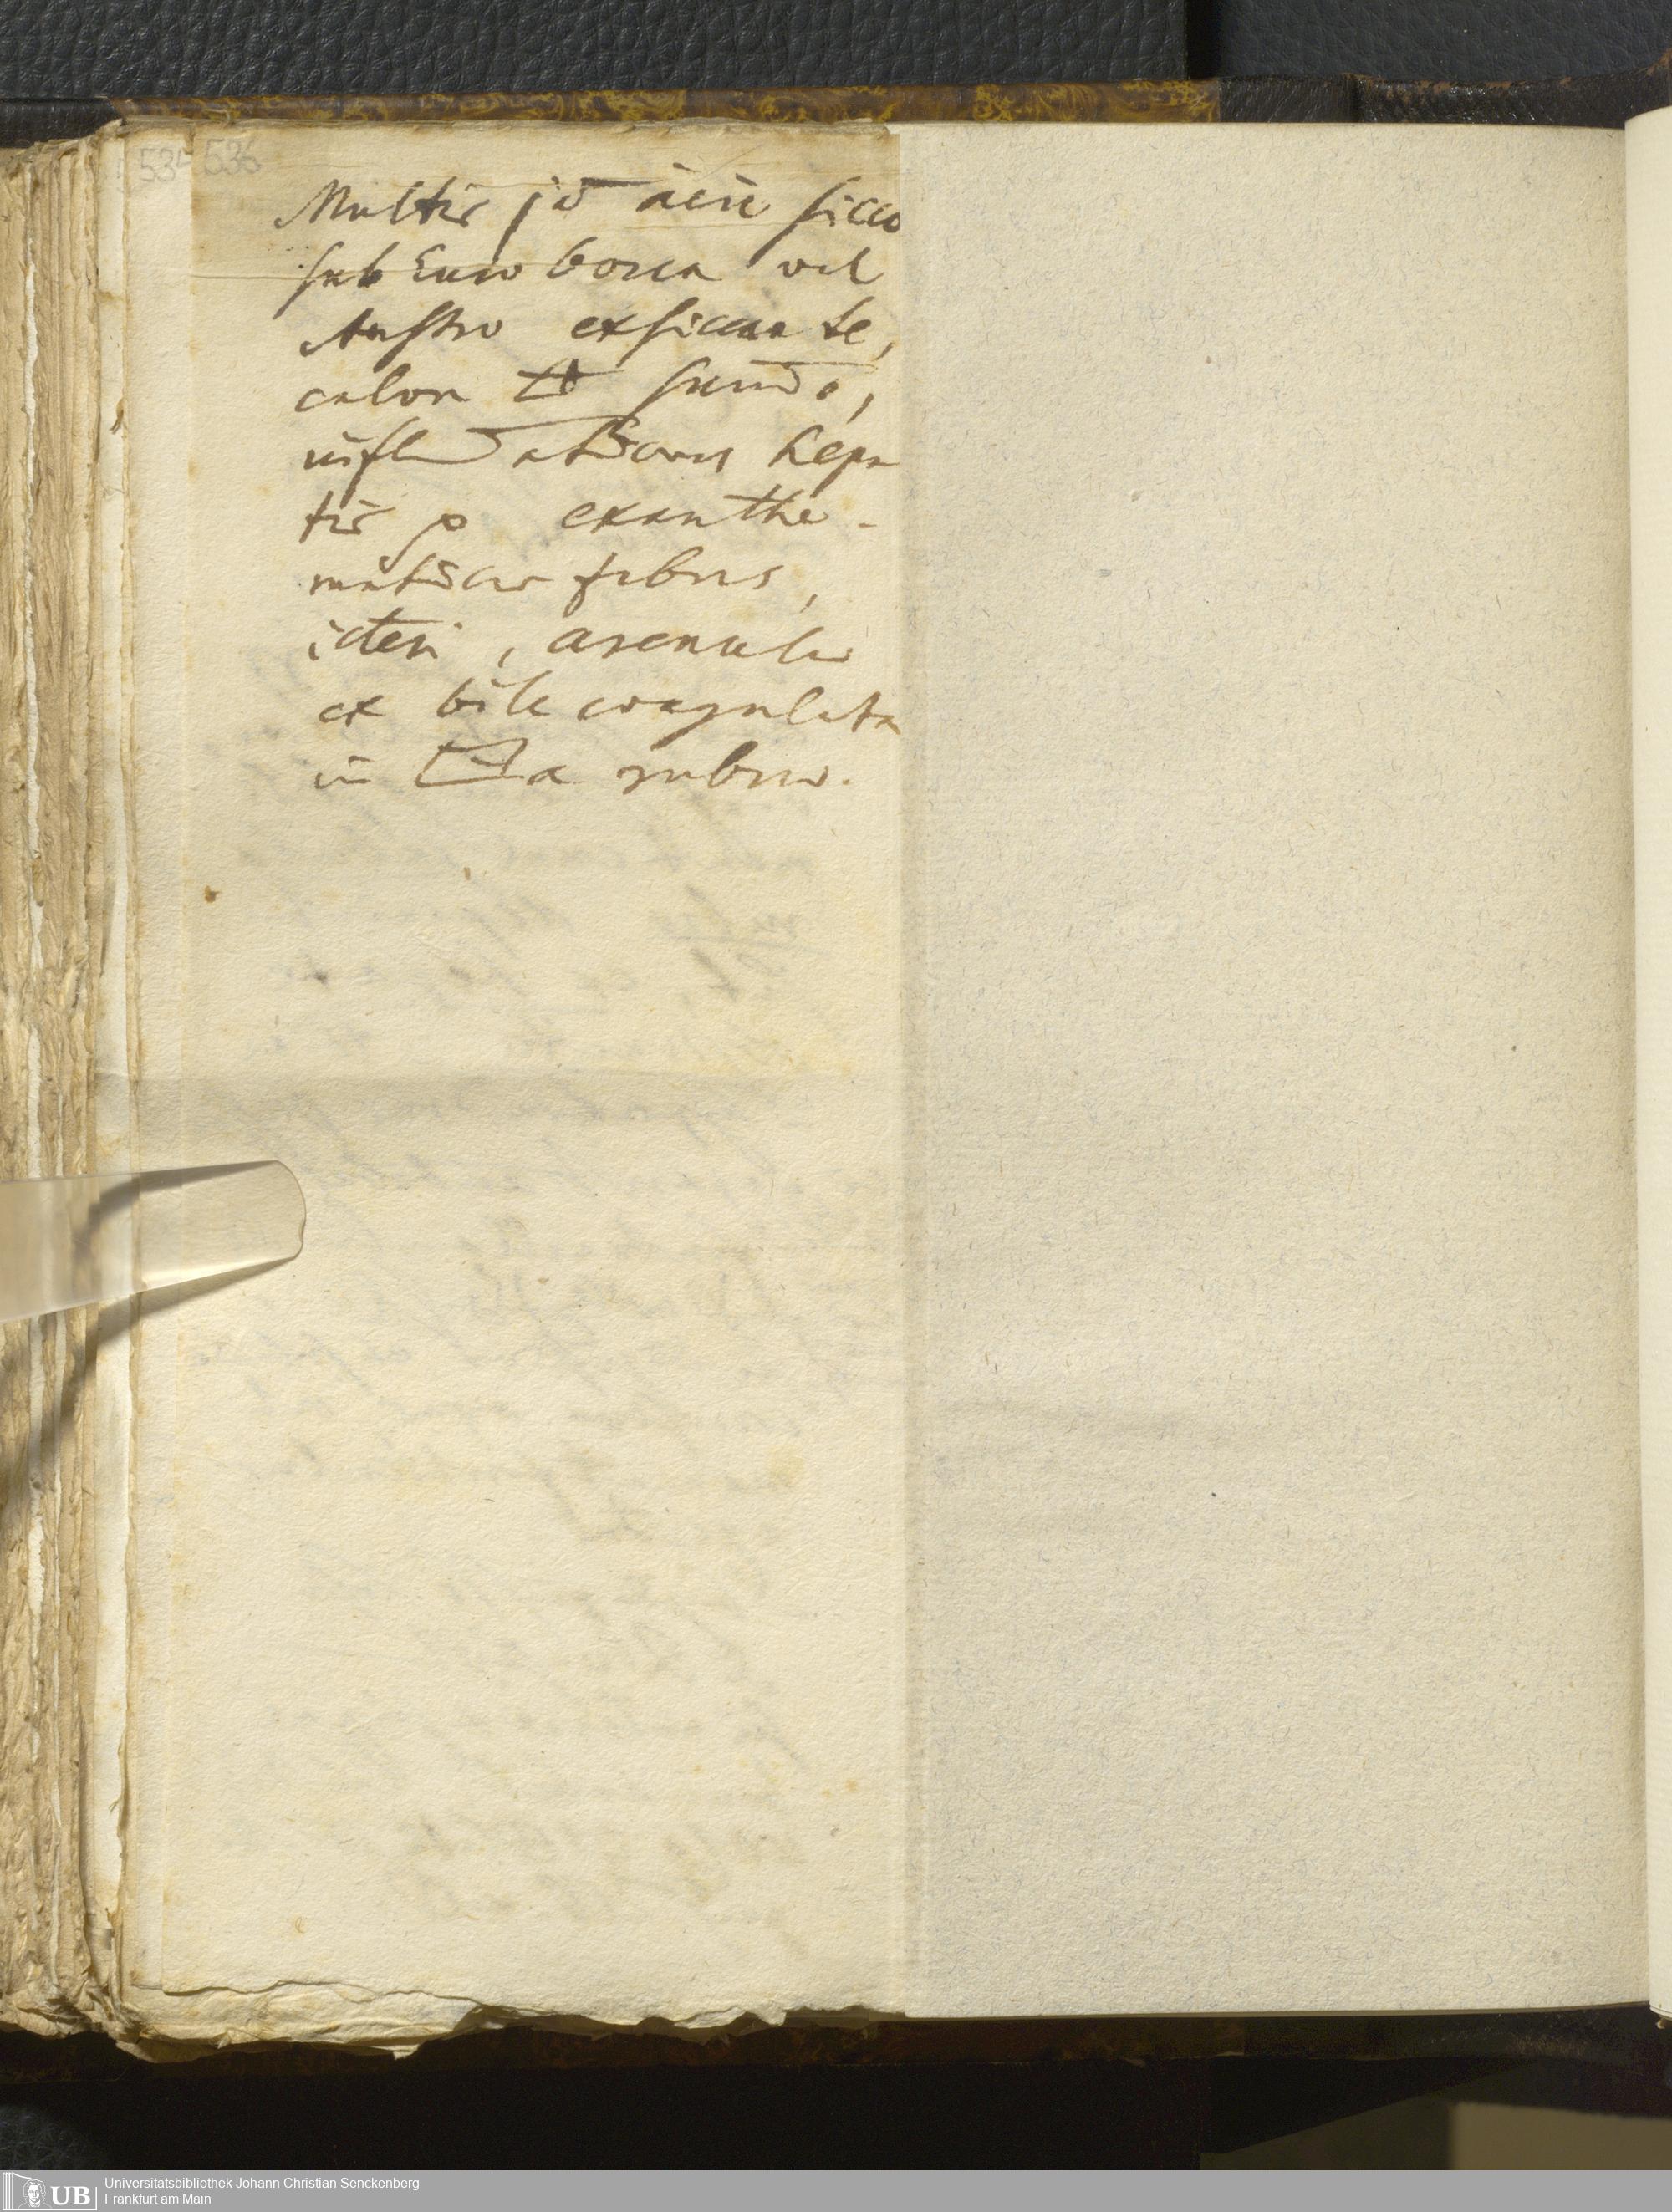 535 536
Multis jā aëre sicco
sub Euro borea vel
Austro exsiccante,
calore
hepa
tis exanthe-
maticae febres,
icteri, arenulae
ex bile coagulata
in a rubrae.
UB Universitätsbibliothek Johann Christian Senckenberg
Frankfurt am Main